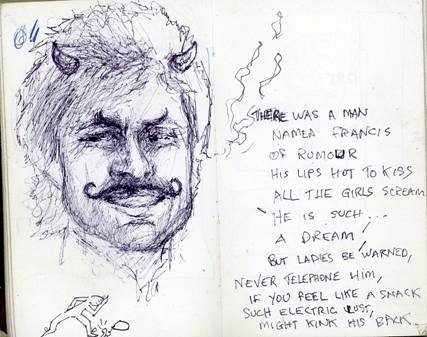 64
THERE WAS A MAN
NAMED FRANCIS
OF RUMOUR
HIS LIPS HOT TO KISS
ALL THE GIRLS SCREAM
HE IS SUCH...
A DREAM
BUT LADIES BE WARNED,
NEVER TELEPHONE HIM,
IF YOU FEEL LIKE A SMACK
SUCH ELECTRIC LUST,
MIGHT KINK HIS BACK.